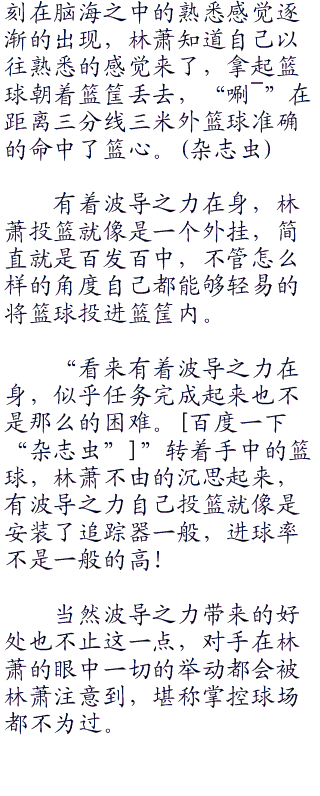 刻在脑海之中的熟悉感觉逐
渐的出现，林萧知道自己以
往熟悉的感觉来了，拿起篮
球朝着篮筐丢去，“唰¯”在
距离三分线三米外篮球准确
的命中了篮心。(杂志虫)
有着波导之力在身，林
萧投篮就像是一个外挂，简
直就是百发百中，不管怎么
样的角度自己都能够轻易的
将篮球投进篮筐内。
“看来有着波导之力在
身，似乎任务完成起来也不
是那么的困难。[百度一下
“杂志虫”]”转着手中的篮
球，林萧不由的沉思起来，
有波导之力自己投篮就像是
安装了追踪器一般，进球率
不是一般的高!
当然波导之力带来的好
处也不止这一点，对手在林
萧的眼中一切的举动都会被
林萧注意到，堪称掌控球场
都不为过。